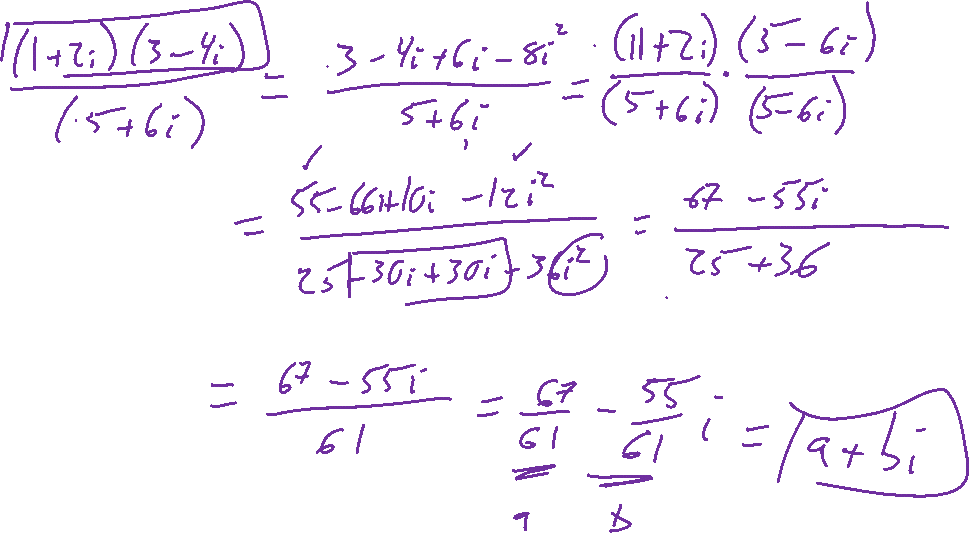 ((1+2i)(3-4i))/(5+6i) = (3-4i+6i-8i²)/(5+6i) = (11+2i)/(5+6i) · (5-6i)/(5-6i)
= (55-66i+10i-12i²)/(25-30i+30i-36i²) = (67-55i)/(25+36)
= (67-55i)/61 = 67/61 - 55/61 i = a+bi
a b